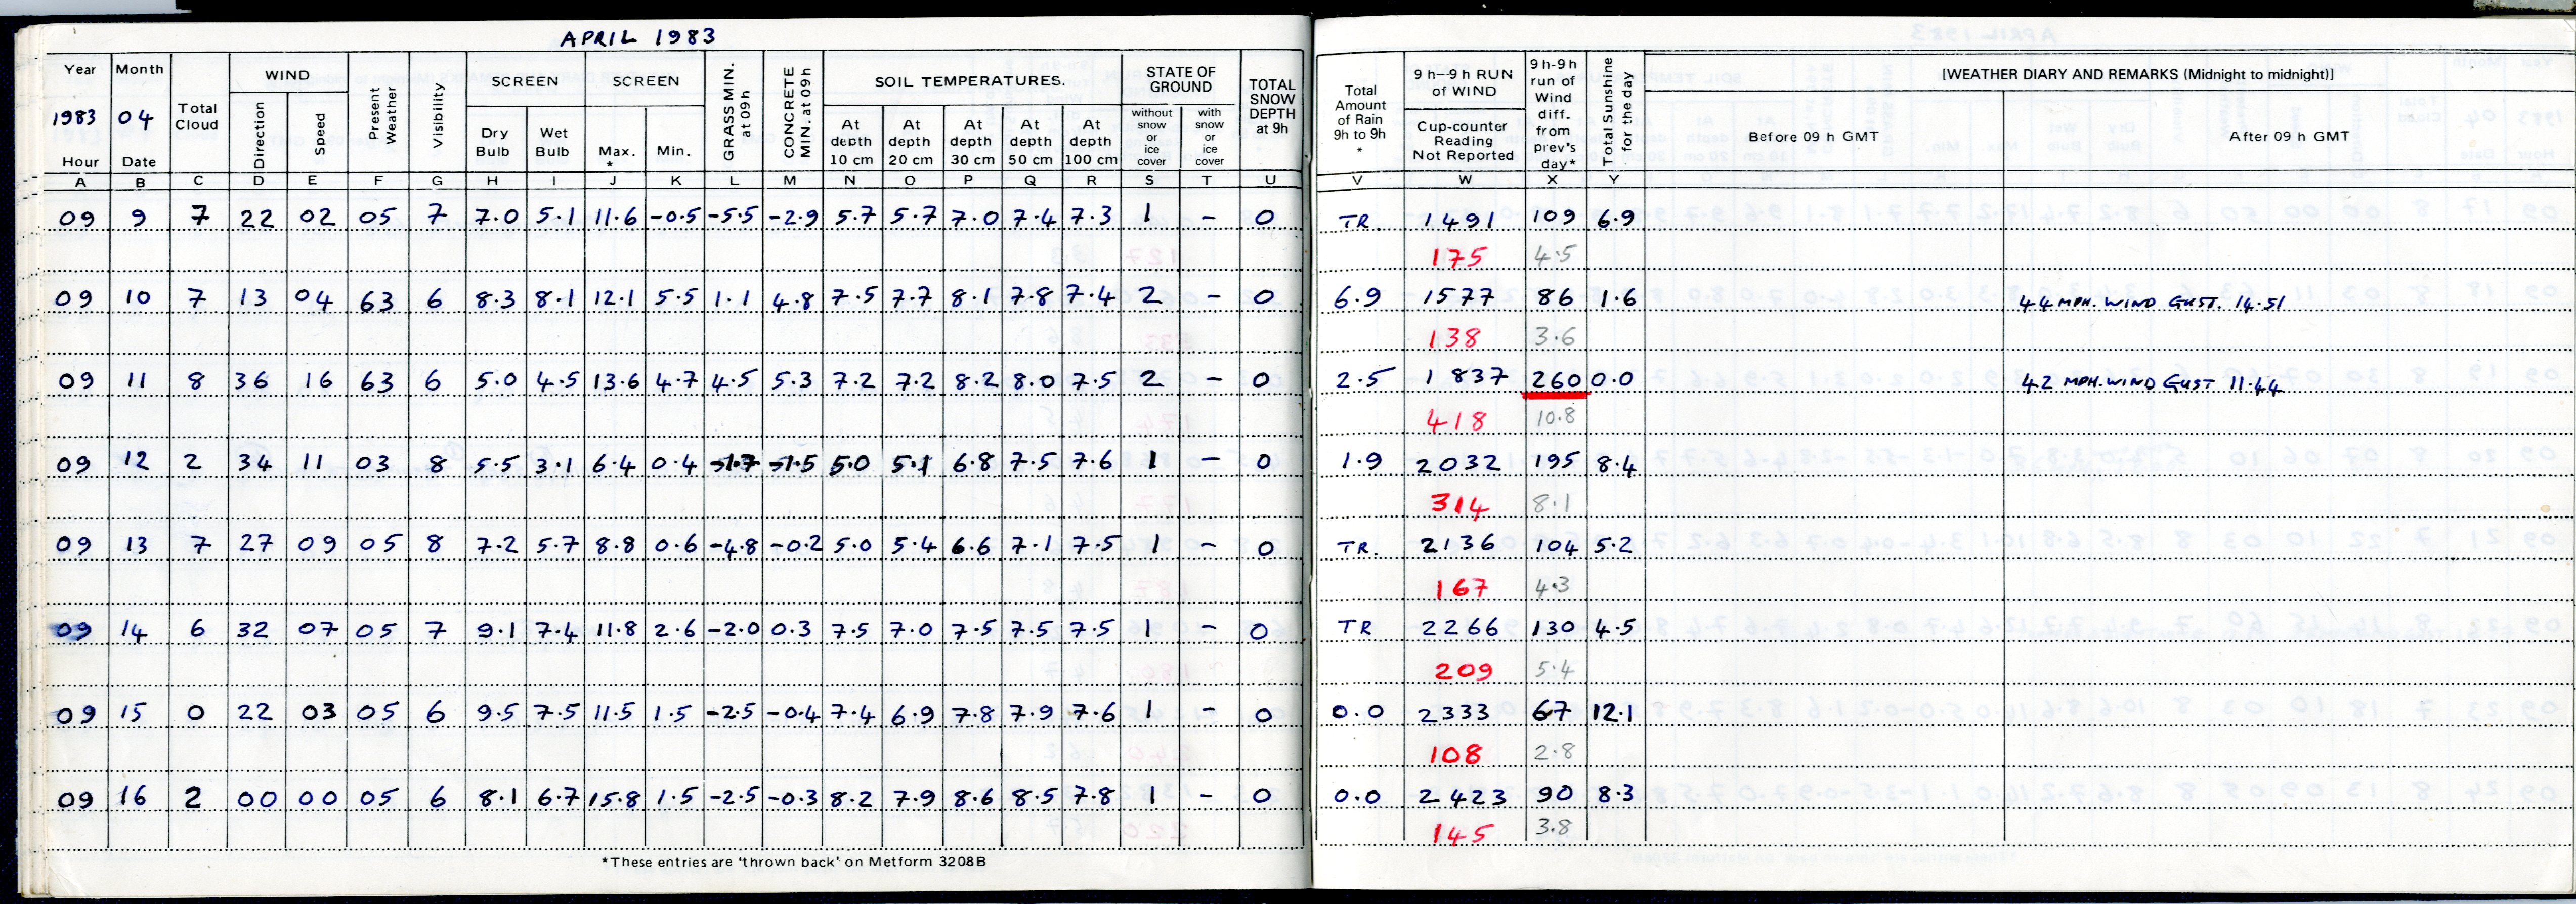 APRIL 1983
Year Month Total Cloud WIND Present Weather Visibility SCREEN SCREEN GRASS MIN. at 09h CONCRETE MIN. at 09h SOIL TEMPERATURES. STATE OF GROUND TOTAL SNOW DEPTH at 9h Total Amount of Rain 9h to 9h * 9h--9h RUN of WIND 9h-9h run of Wind diff. from prev's day* Total Sunshine for the day [WEATHER DIARY AND REMARKS (Midnight to midnight)]
1983 04 Direction Speed Dry Bulb Wet Bulb Max. * Min. At depth 10 cm At depth 20 cm At depth 30 cm At depth 50 cm At depth 100 cm without snow or ice cover with snow or ice cover Cup-counter Reading Not Reported Before 09 h GMT After 09 h GMT
Hour Date
A B C D E F G H I J K L M N O P Q R S T U V W X Y
09 9 7 22 02 05 7 7.0 5.1 11.6 -0.5 -5.5 -2.9 5.7 5.7 7.0 7.4 7.3 1 - 0 TR. 1491 109 6.9
175 4.5
09 10 7 13 04 63 6 8.3 8.1 12.1 5.5 1.1 4.8 7.5 7.7 8.1 7.8 7.4 2 - 0 6.9 1577 86 1.6 44 MPH. WIND GUST. 14.51
138 3.6
09 11 8 36 16 63 6 5.0 4.5 13.6 4.7 4.5 5.3 7.2 7.2 8.2 8.0 7.5 2 - 0 2.5 1837 260 0.0 42 MPH. WIND GUST 11.44
418 10.8
09 12 2 34 11 03 8 5.5 3.1 6.4 0.4 -1.7 -1.5 5.0 5.1 6.8 7.5 7.6 1 - 0 1.9 2032 195 8.4
314 8.1
09 13 7 27 09 05 8 7.2 5.7 8.8 0.6 -4.8 -0.2 5.0 5.4 6.6 7.1 7.5 1 - 0 TR. 2136 104 5.2
167 4.3
09 14 6 32 07 05 7 9.1 7.4 11.8 2.6 -2.0 0.3 7.5 7.0 7.5 7.5 7.5 1 - 0 TR 2266 130 4.5
209 5.4
09 15 0 22 03 05 6 9.5 7.5 11.5 1.5 -2.5 -0.4 7.4 6.9 7.8 7.9 7.6 1 - 0 0.0 2333 67 12.1
108 2.8
09 16 2 00 00 05 6 8.1 6.7 15.8 1.5 -2.5 -0.3 8.2 7.9 8.6 8.5 7.8 1 - 0 0.0 2423 90 8.3
145 3.8
*These entries are 'thrown back' on Metform 3208B